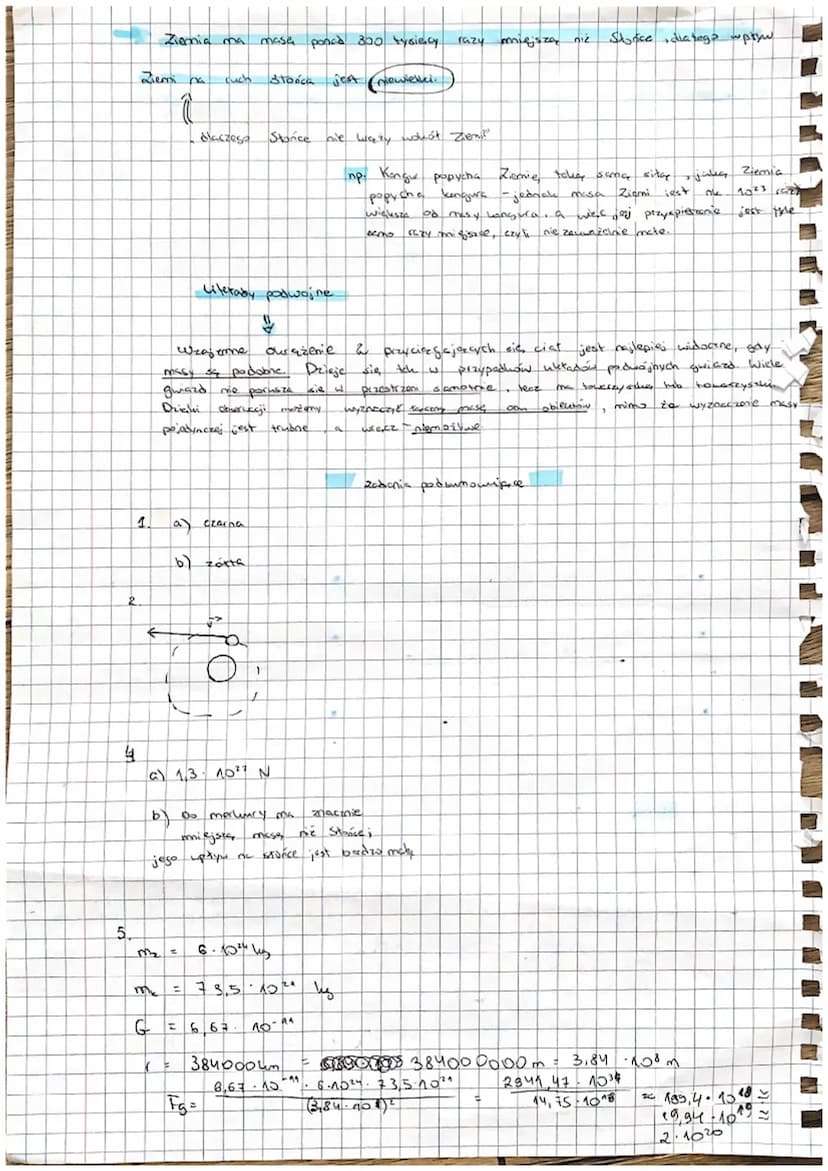 Ziemia ma masę ponad 300 tysięcy razy mniejszą niż Słońce, dlatego wpływ
Ziemi na ruch Słońca jest niewielki.
dlaczego Słońce nie krąży wokół Ziemi?
np. Kangur popycha Ziemię taką samą siłą, jaką Ziemia
popycha kangura - jednak masa Ziemi jest ok. 10²³ razy
większa od masy kangura, a więc jej przyspieszenie jest tyle
samo razy mniejsze, czyli niezauważalnie małe.
Układy podwójne
Wzajemne okrążenie 2 przyciągających się ciał jest najlepiej widoczne, gdy
masy są podobne. Dzieje się tak w przypadków układów podwójnych gwiazd. Wiele
gwiazd nie porusza się w przestrzeni samotnie, lecz ma towarzyszkę lub towarzyszki
Dzięki obserwacji możemy wyznaczyć łączną masę obiektów, mimo że wyznaczone masy
pojedynczej jest trudne, a wręcz - niemożliwe
zadania podsumowujące
1. a) czarna
b) żółta
2.
v→
4
a) 1,3 · 10²² N
b) bo merkury ma znacznie
mniejszą masę niż Słońce i
jego wpływ na słońce jest bardzo mały
5.
mz = 6 · 10²⁴ kg
mk = 73,5 · 10²¹ kg
G = 6,67 · 10⁻¹¹
r = 384000 km = 384000000 m = 3,84 · 10⁸ m
Fg = 6,67 · 10⁻¹¹ · 6 · 10²⁴ · 73,5 · 10²¹ / (3,84 · 10⁸)² = 2941,47 · 10³⁴ / 14,75 · 10¹⁶ ≈ 199,4 · 10¹⁸ ≈
19,94 · 10¹⁹ ≈
2 · 10²⁰